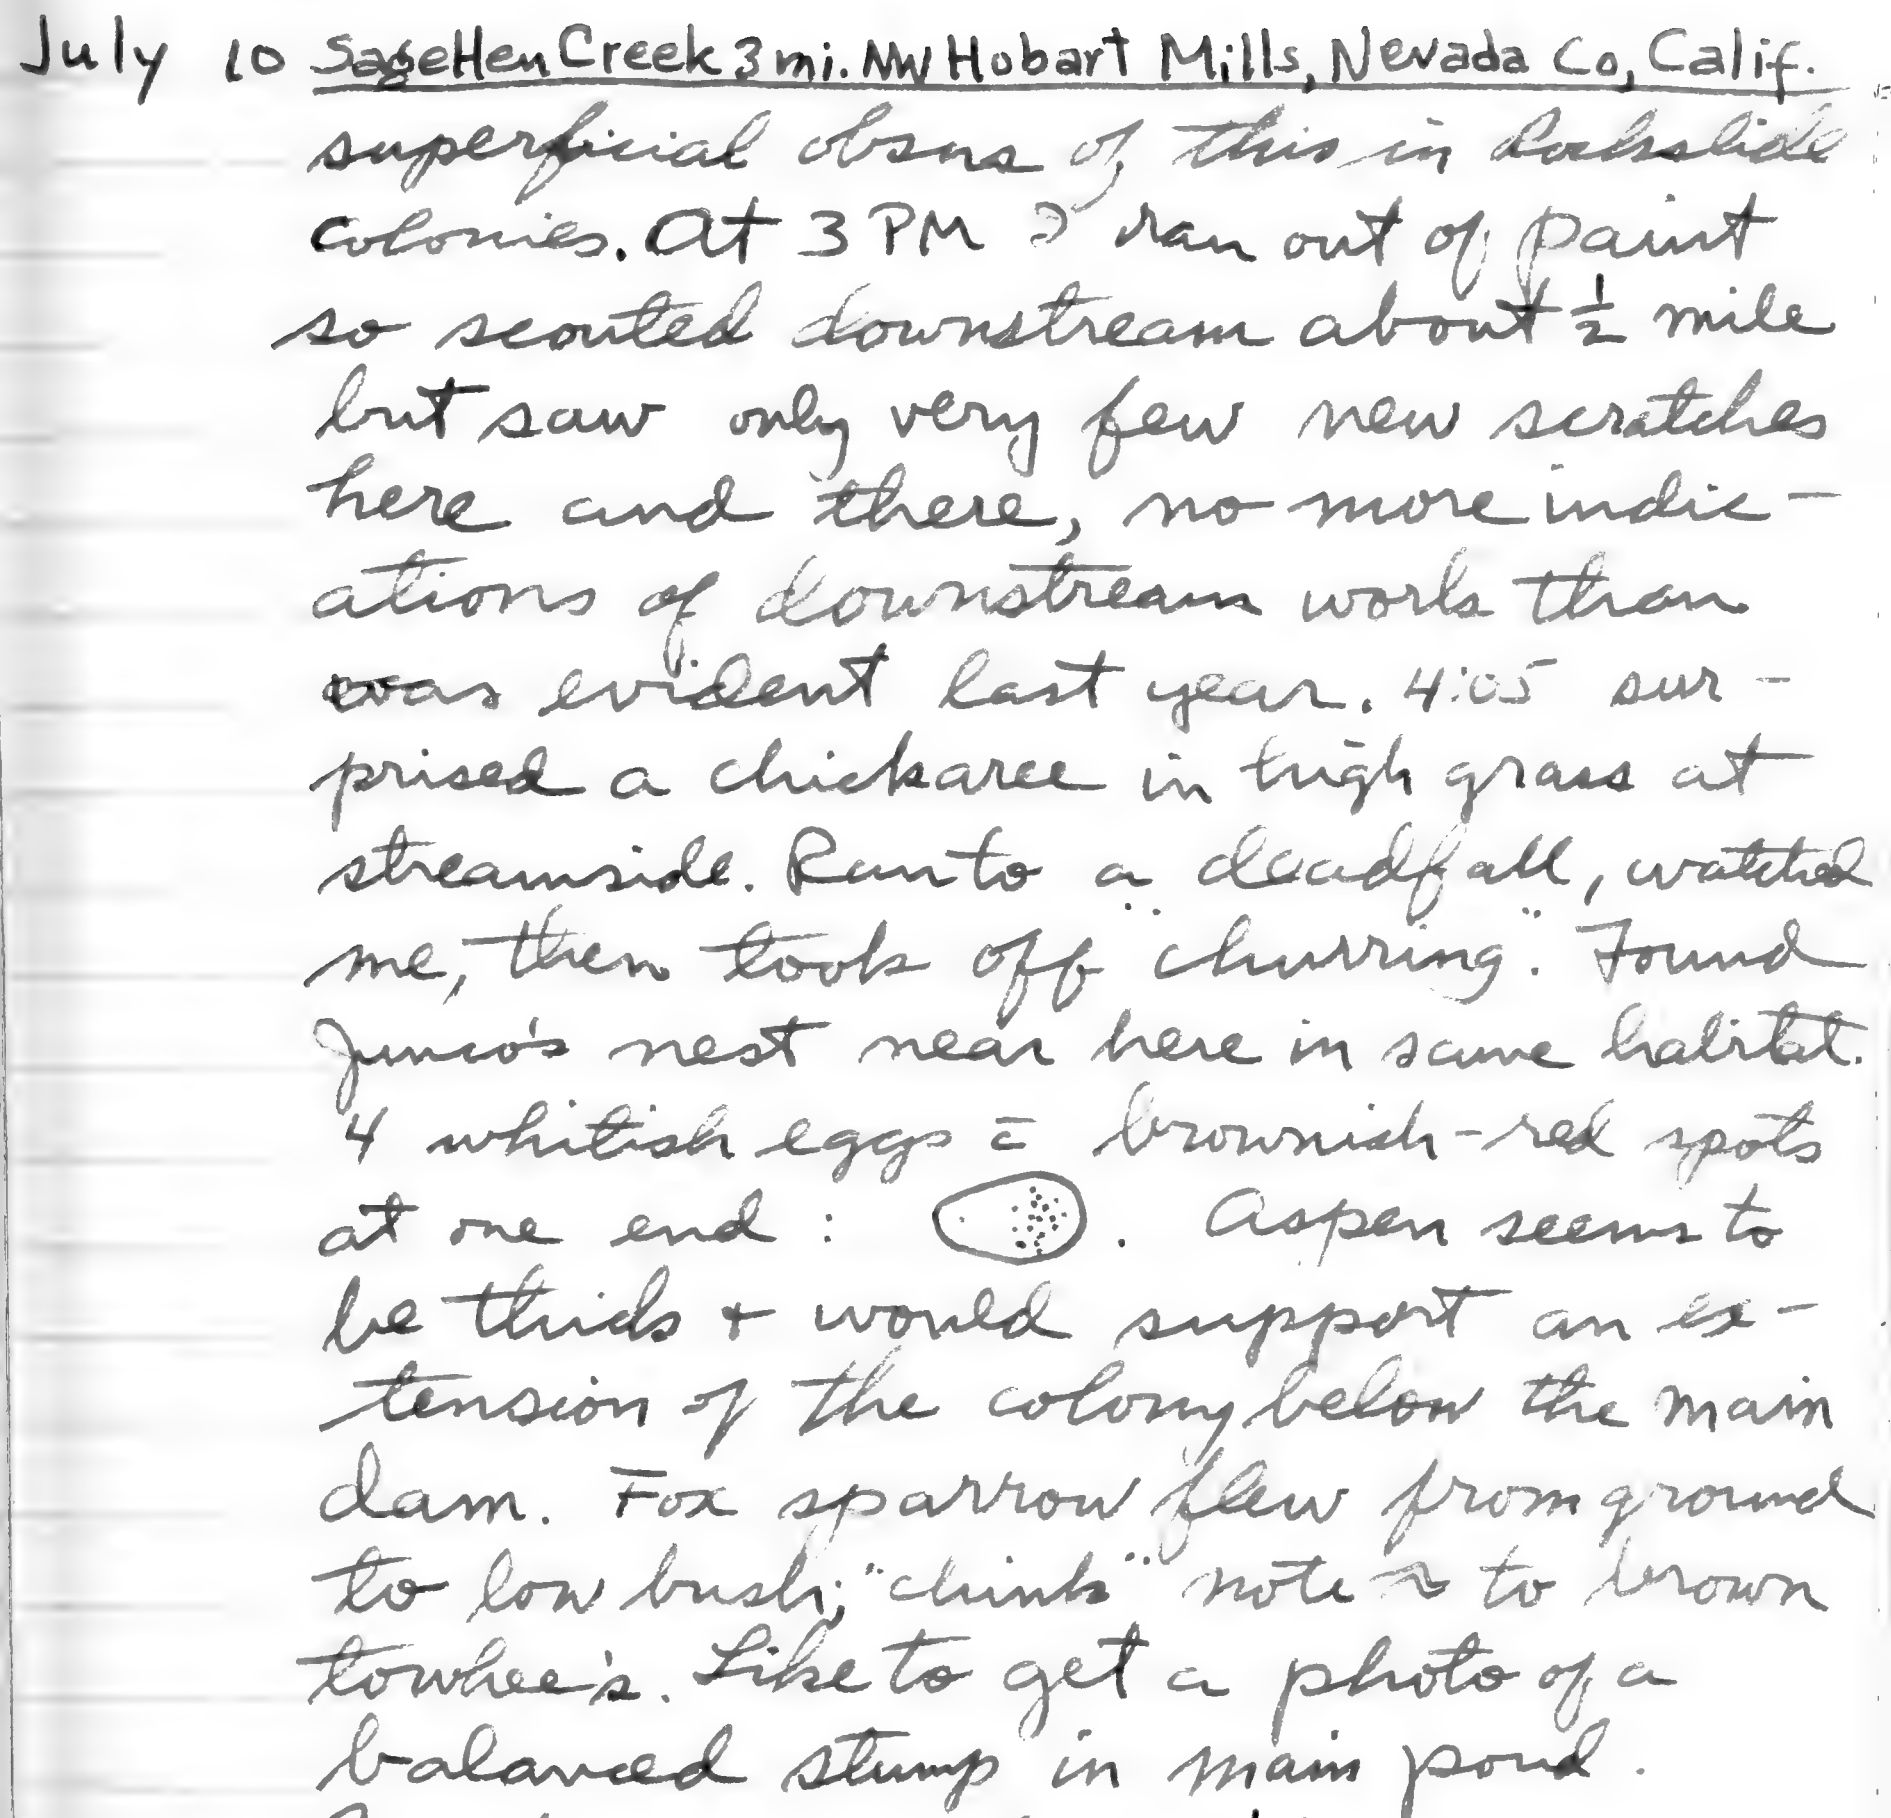 July 10 SageHen Creek 3 mi. NW Hobart Mills, Nevada Co, Calif.
superficial obsns of this in Rockslide
colonies. At 3 PM I ran out of paint
so scouted downstream about ½ mile
but saw only very few new scratches
here and there, no more indic-
ations of downstream work than
was evident last year. 4:05 sur-
prised a chickaree in high grass at
streamside. Ran to a deadfall, watched
me, then took off "churring". Found
Junco's nest near here in same habitat.
4 whitish eggs c̄ brownish-red spots
at one end : . Aspen seems to
be thick + would support an ex-
tension of the colony below the main
dam. Fox sparrow flew from ground
to low bush; "chink" note ~ to brown
towhee's. Like to get a photo of a
balanced stump in main pond.